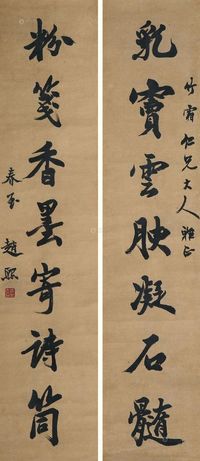 竹霜仁兄大人雅正
乳竇雲腴凝石髓
粉箋香墨寄詩筒
春丞
趙熙